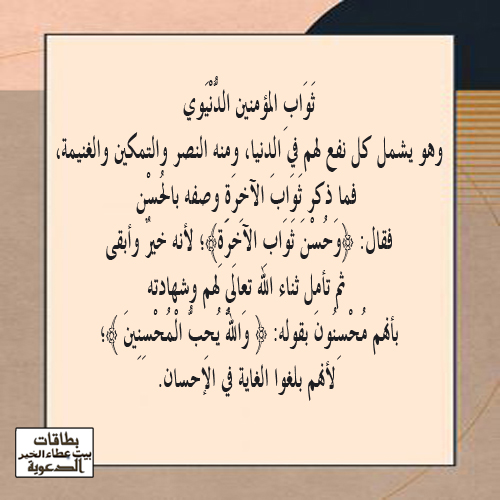 ثَوَابِ المؤمنين الدُّنْيَوي
وهو يشمل كل نفع لهم في الدنيا، ومنه النصر والتمكين والغنيمة،
فما ذكر ثَوَابَ الآخِرَةِ وصفه بالحُسْن
فقال: ﴿وَحُسْنَ ثَوَابِ الآخِرَةِ﴾؛ لأنه خيرٌ وأبقى
ثم تأمل ثناء الله تعالَى لَهم وشهادته
بأنهم مُحْسِنُونَ بقوله: ﴿ وَاللهُ يُحِبُّ الْمُحْسِنِينَ ﴾؛
لأنهم بلغوا الغاية في الإحسان.
بطاقات
بيت عطاء الخير
الدعوية